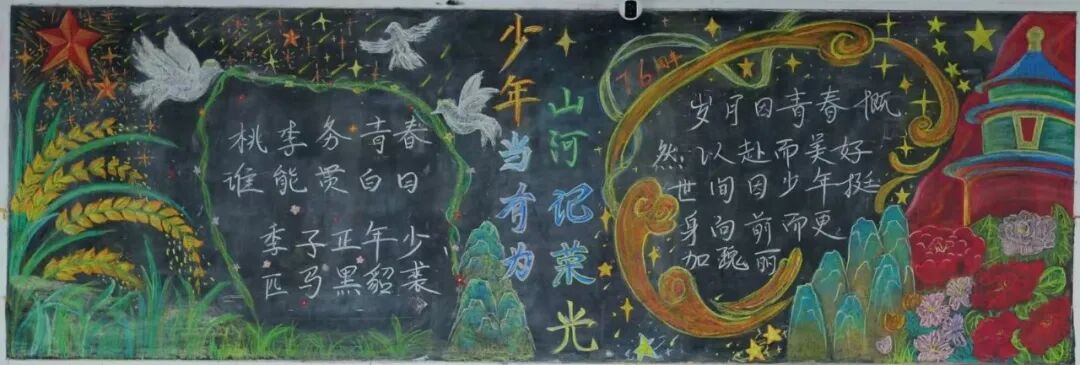 少年当有为
山河记荣光
桃李务青春
谁能贳白日
季子正年少
匹马黑貂裘
岁月因青春慨
然以赴而美好
世间因少年挺
身向前而更
加瑰丽